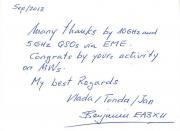 Sep/2013
Many thanks by 10GHz and
5GHz QSOs via EME.
Congrats by your activity
on MWs.
My best Regards
Vlada/Tonda/Jan
Benjamin EA3XU